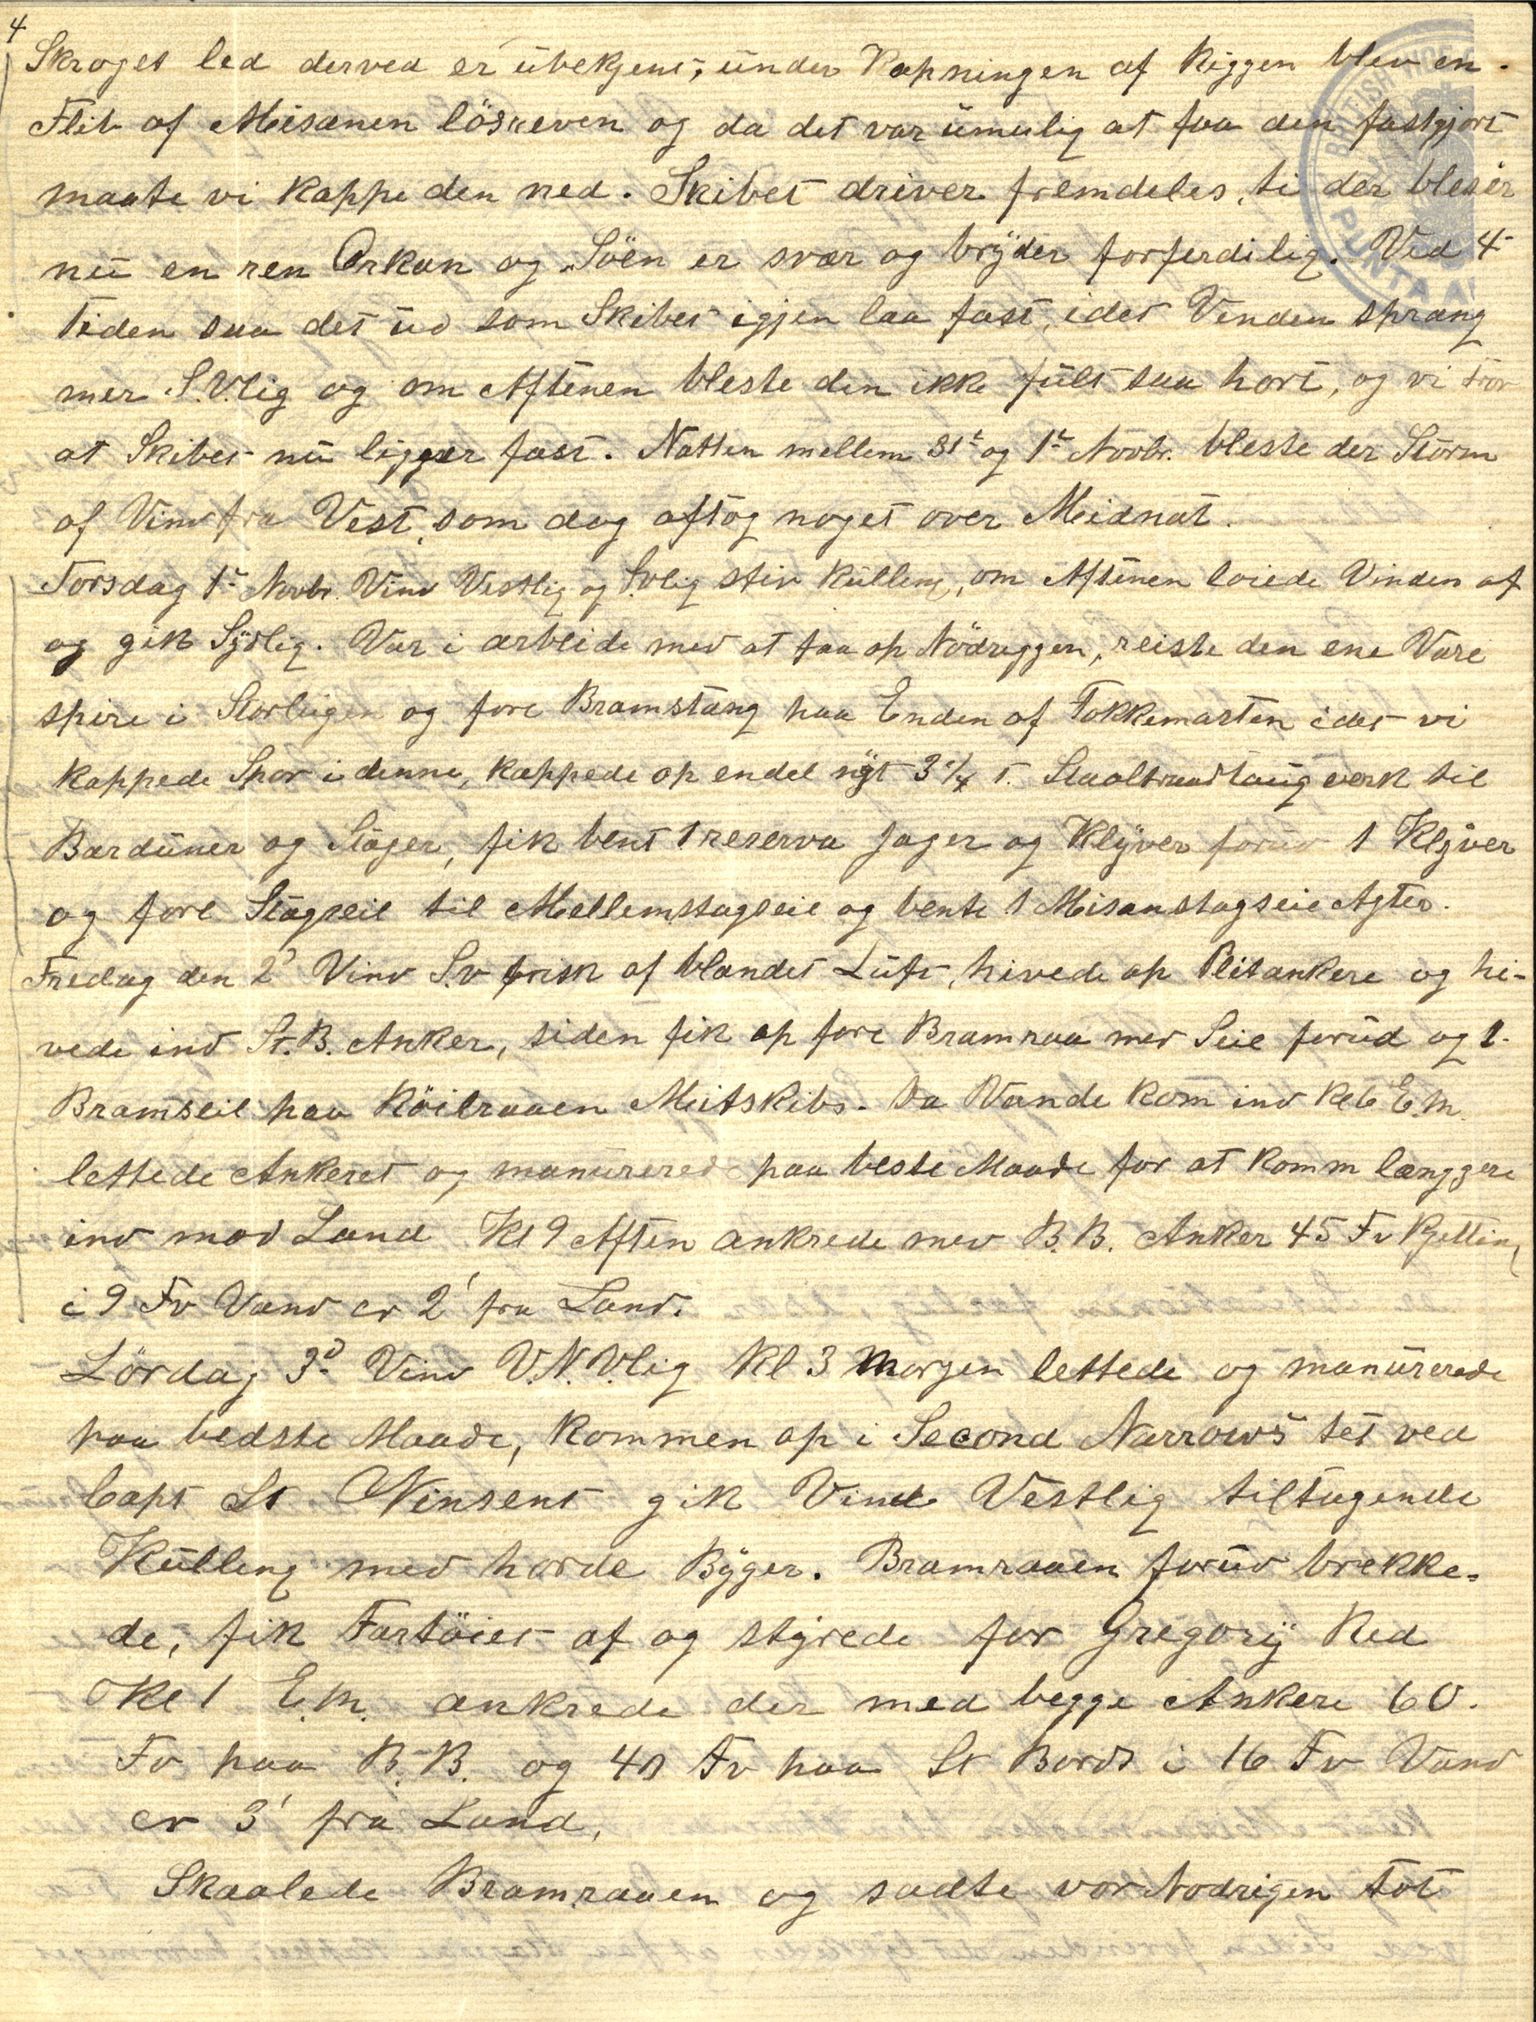 4
Skroget led derved er ubekjent, under Kapningen af Riggen blev en
Flik af Mesanen löskeven og da det var umulig at faa den fastgjort
maate vi kappe den ned. Skibet driver fremdeles, ti der bleser
nu en ren Orkan og Söen er svær og bryder forferdilig. Ved 4
Tiden saa det ud som Skibet igjen laa fast, idet Vinden sprang
mer S.V.lig og om Aftenen bleste den ikke fult saa hort, og vi tror
at Skibet nu ligger fast. Natten mellem 31t og 1t Novbr. bleste der Storm
af Vind fra Vest, som dog aftog noget over Midnat.
Torsdag 1t Novbr. Vind Vestlig og S.vlig stiv Kulling, om Aftenen loiede Vinden af
og gik Sydlig. Var i arbeide med at faa op Nödriggen, reiste den ene Vare
spire i Storlugen og fore Bramstang paa Enden af Fokkemasten idet vi
kappede Spor i denne, kappede op endel nyt 3 1/4 T. Staaltraadtaugverk til
Barduner og Stager, fik bent 1 reserva Jager og Klyver forud 1 Klyver
og fore Stagseil til Mellemstagseil og bente 1 Misanstagseil Agter.
Fredag den 2d Vind S.v frisk af blandet Luft, hivede op Plitankere og hi-
vede ind St.B. Anker, siden fik op fore Bramraa med Seil forud og 1
Bramseil paa Röilraaen Mitskibs. Da Vande kom ind Kl 6 E.M.
lettede Ankeret og manurerede paa beste Maade for at komm længgere
ind mod Land Kl 9 Aften ankrede med B.B. Anker 45 Fv Kjetting
i 9 Fv Vand cr 2' fra Land.
Lördag 3d Vind V.N.V.lig Kl 3 Morgen lettede og manurerede
paa bedste Maade, kommen op i Second Narrows tet ved
Capt St Vinsent gik Vind Vestlig tiltagende
Kulling med harde Byger. Bramraaen forud brekke-
de, fik Fartöiet af og styrede for Gregory Red
Kl 1 E.M. ankrede der med begge Ankere 60
Fv paa B.B. og 40 Fv paa St Bords i 16 Fv Vand
cr 3' fra Land,
Skaalede Bramraaen og sadte vor Nodrigen tot